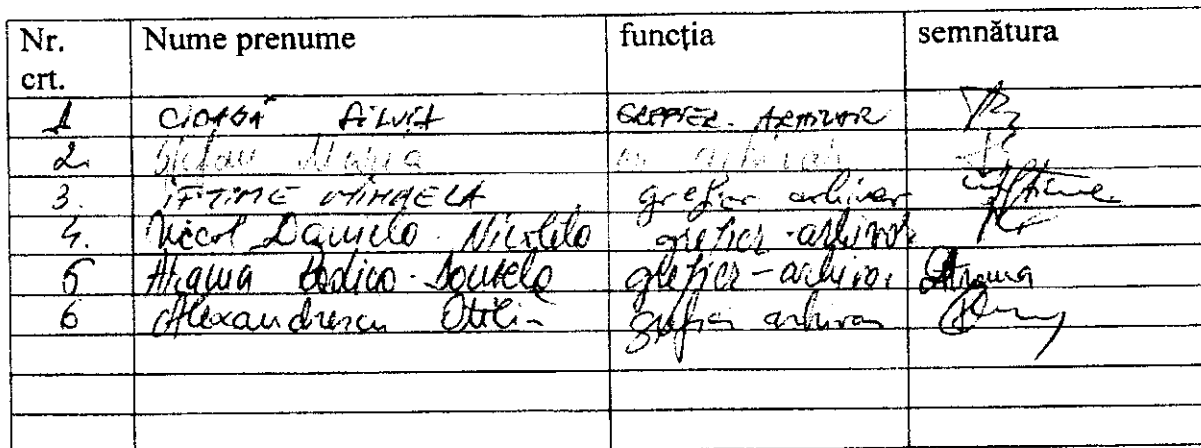 Nr. crt. Nume prenume funcția semnătura
1 CIOABĂ SILVIA GREFIER - ARHIVAR
2. Ștefan Maria arhivar
3. IFTIME MIHAELA grefier arhivar Iftime
4. Niccol Daniela - Nicoleta grefier - arhivar
5 Rodica - grefier - arhivar
6 Alexandrescu Otilia grefier arhivar